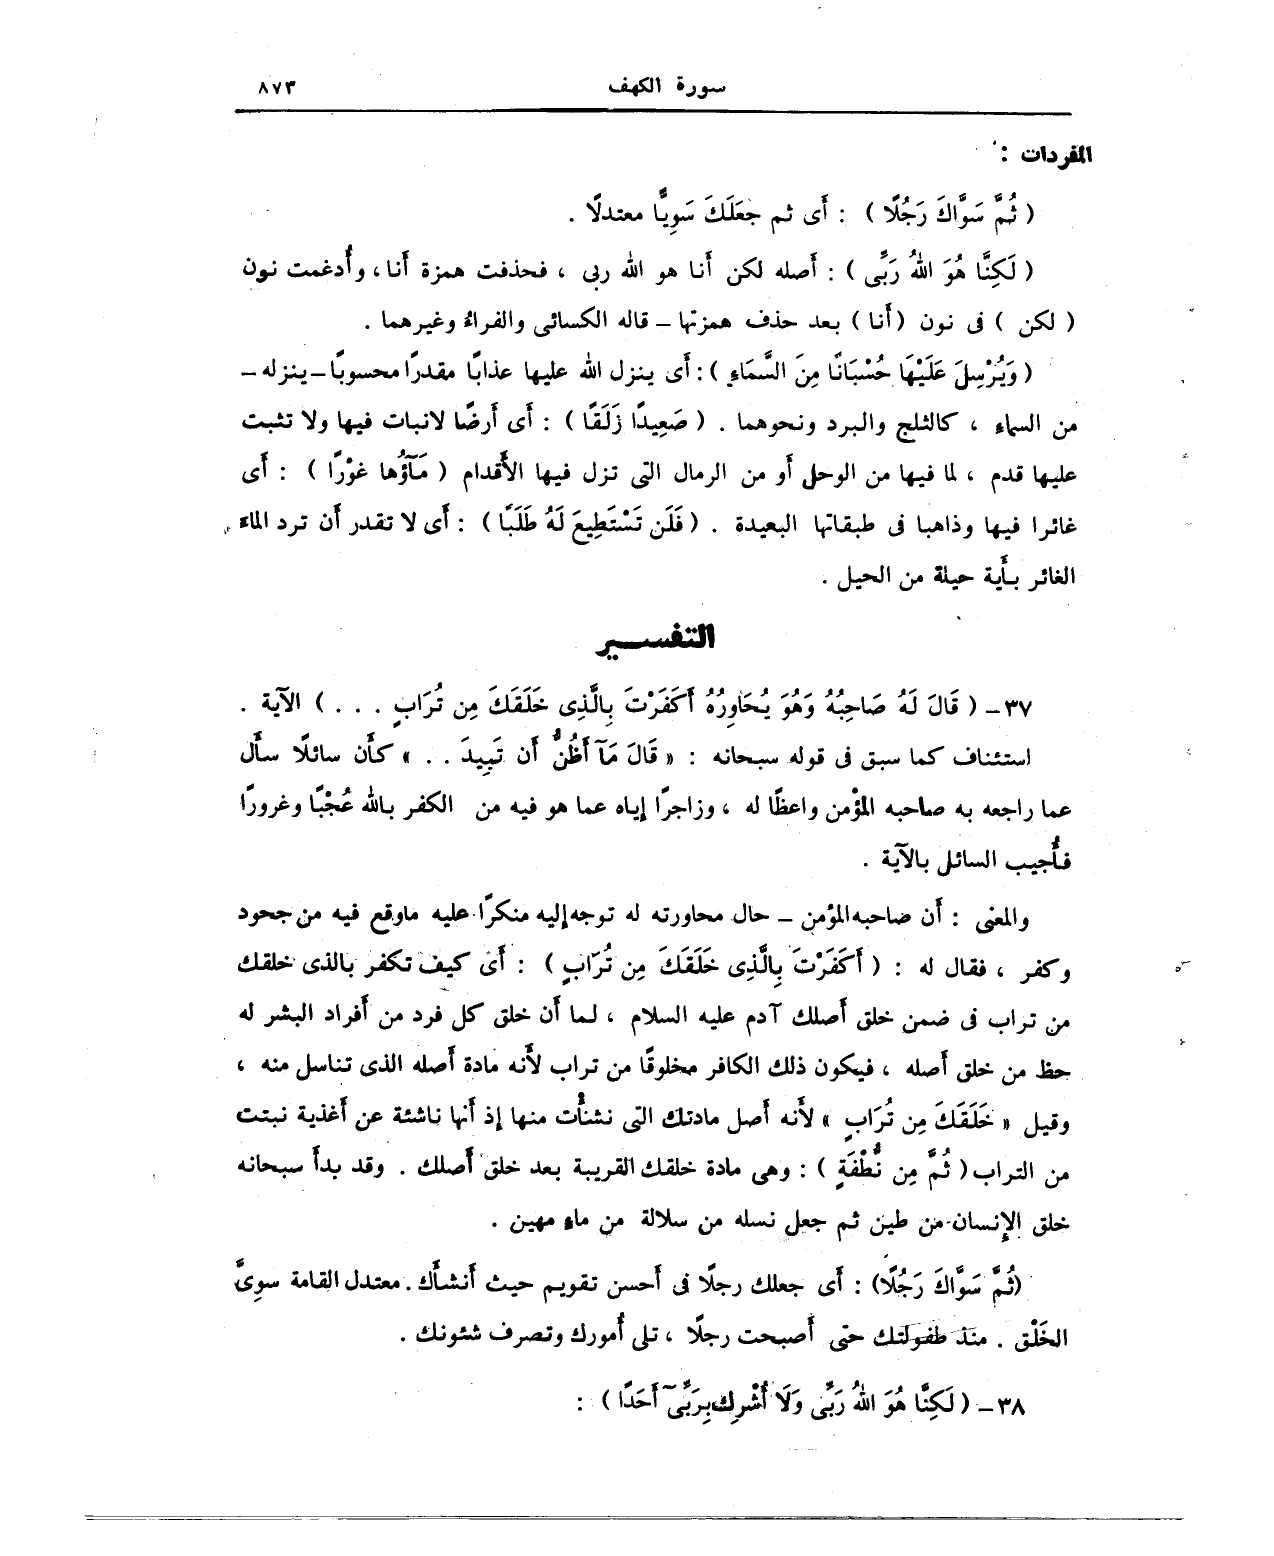 سورة الكهف ٨٧٣
المفردات :
( ثُمَّ سَوَّاكَ رَجُلًا ) : أَى ثم جعَلَكَ سَوِيًّا معتدلًا .
( لَكِنَّا هُوَ اللهُ رَبِّى ) : أَصله لكن أَنا هو الله ربى ، فحذفت همزة أَنا ، وأُدغمت نون
( لكن ) فى نون ( أَنا ) بعد حذف همزتها – قاله الكسائى والفراءُ وغيرهما .
( وَيُرْسِلَ عَلَيْهَا حُسْبَانًا مِنَ السَّمَاءِ ) : أَى ينزل الله عليها عذابًا مقدرًا محسوبًا – ينزله –
من السماء ، كالثلج والبرد ونحوهما . ( صَعِيدًا زَلَقًا ) : أَى أَرضًا لانبات فيها ولا تثبت
عليها قدم ، لما فيها من الوحل أَو من الرمال التى تزل فيها الأَقدام ( مَآؤُها غوْرًا ) : أَى
غائرا فيها وذاهبا فى طبقاتها البعيدة . ( فَلَن تَسْتَطِيعَ لَهُ طَلَبًا ) : أَى لا تقدر أَن ترد الماء
الغائر بأَية حيلة من الحيل .
التفسير
٣٧ – ( قَالَ لَهُ صَاحِبُهُ وَهُوَ يُحَاوِرُهُ أَكَفَرْتَ بِالَّذِى خَلَقَكَ مِن تُرَابٍ . . . ) الآية .
استئناف كما سبق فى قوله سبحانه : « قَالَ مَآ أَظُنُّ أَن تَبِيدَ . . » كأَن سائلًا سأَل
عما راجعه به صاحبه المؤْمن واعظًا له ، وزاجرًا إياه عما هو فيه من الكفر بالله عُجْبًا وغرورًا
فأُجيب السائل بالآية .
والمعنى : أَن صاحبه المؤمن – حال محاورته له توجه إليه منكرًا عليه ماوقع فيه من جحود
وكفر ، فقال له : ( أَكَفَرْتَ بِالَّذِى خَلَقَكَ مِن تُرَابٍ ) : أَى كيف تكفر بالذى خلقك
من تراب فى ضمن خلق أَصلك آدم عليه السلام ، لما أَن خلق كل فرد من أَفراد البشر له
حظ من خلق أَصله ، فيكون ذلك الكافر مخلوقًا من تراب لأَنه مادة أَصله الذى تناسل منه ،
وقيل « خَلَقَكَ مِن تُرَابٍ » لأَنه أَصل مادتك التى نشأَت منها إذ أَنها ناشئة عن أَغذية نبتت
من التراب ( ثُمَّ مِن نُّطْفَةٍ ) : وهى مادة خلقك القريبة بعد خلق أَصلك . وقد بدأَ سبحانه
خلق الإنسان من طين ثم جعل نسله من سلالة من ماءٍ مهين .
( ثُمَّ سَوَّاكَ رَجُلًا ) : أَى جعلك رجلًا فى أَحسن تقويم حيث أَنشأَك . معتدل القامة سوِىَّ
الخَلْق . منذ طفولتك حتى أَصبحت رجلًا ، تلى أُمورك وتصرف شئونك .
٣٨ – ( لَكِنَّا هُوَ اللهُ رَبِّى وَلَا أُشْرِك بِرَبِّىٓ أَحَدًا ) :